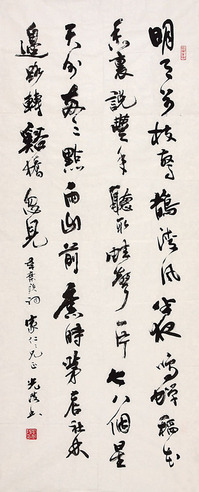 明月别枝驚鵲清風半夜鳴蟬稻花
香裏說豐年聽取蛙聲一片七八個星
天外兩三點雨山前舊時茅店社林
邊路轉谿橋忽見
辛棄疾詞 家仁仁兄正 光書